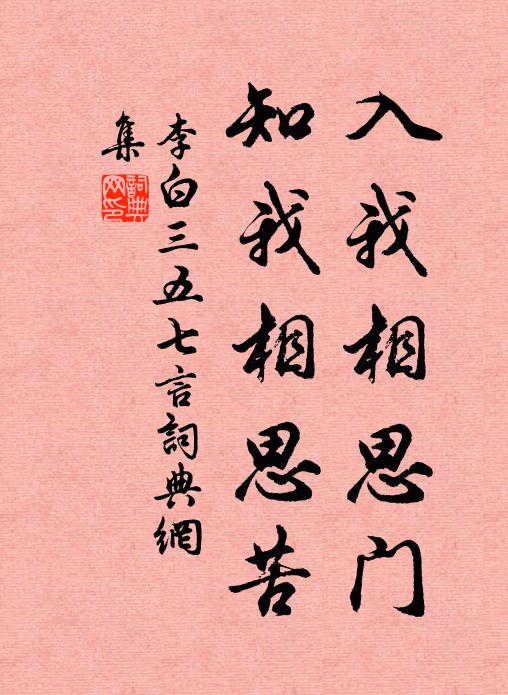 入我相思门
知我相思苦
李白三五七言詞典網
集
詞典
网印